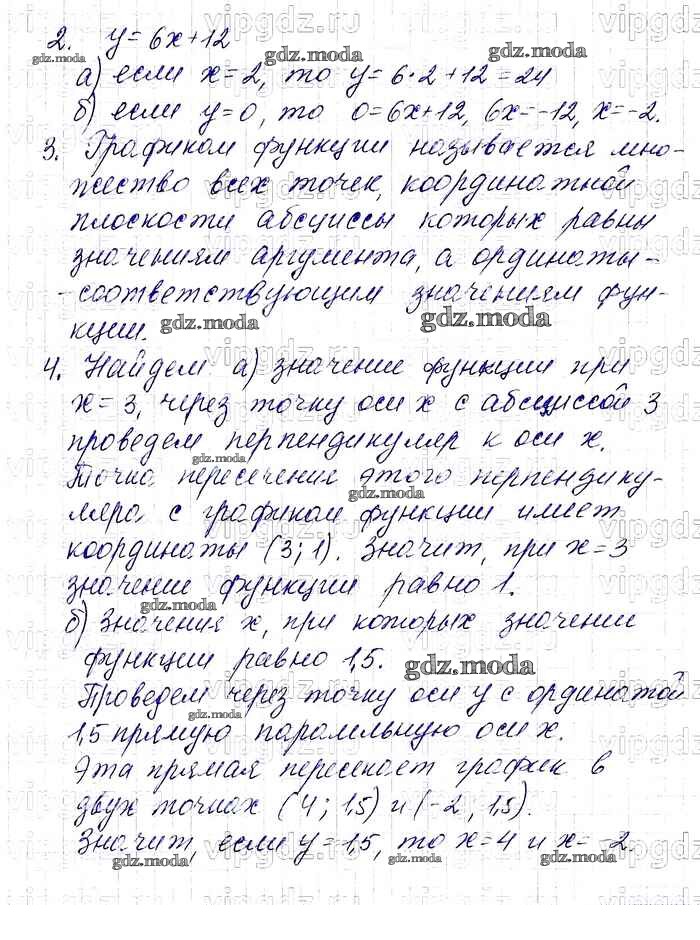 2. y = 6x + 12
а) если x = 2, то y = 6·2 + 12 = 24
б) если y = 0, то 0 = 6x + 12, 6x = -12, x = -2.
3. Графиком функции называется мно-
жество всех точек, координатной
плоскости абсциссы которых равны
значениям аргумента, а ординаты -
- соответствующим значениям фун-
кции.
4. Найдем а) значение функции при
x = 3, через точку оси x с абсциссой 3
проведем перпендикуляр к оси x.
Точка пересечения этого перпендику-
ляра с графиком функции имеет
координаты (3; 1). Значит, при x = 3
значение функции равно 1.
б) Значения x, при которых значение
функции равно 1,5.
Проведем через точку оси y с ординатой
1,5 прямую паралельную оси x.
Эта прямая пересекает график в
двух точках (4; 1,5) и (-2, 1,5).
Значит, если y = 1,5, то x = 4 и x = -2.
gdz.moda
vipgdz